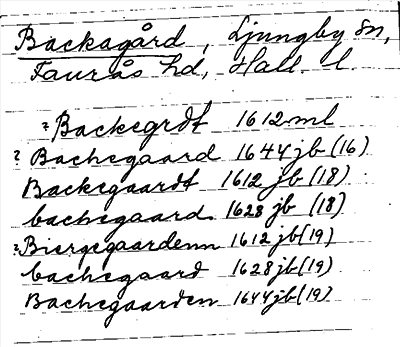 Backagård, Ljungby sn,
Faurås hd, Hall. l.
? Backegrdt 1612 ml
? Bachegaard 1644 jb (16)
Backegaardt 1612 jb (18)
bachegaard 1628 jb (18)
? Biergegaardenn 1612 jb (19)
bachegaard 1628 jb (19)
Bachegaarden 1644 jb (19)